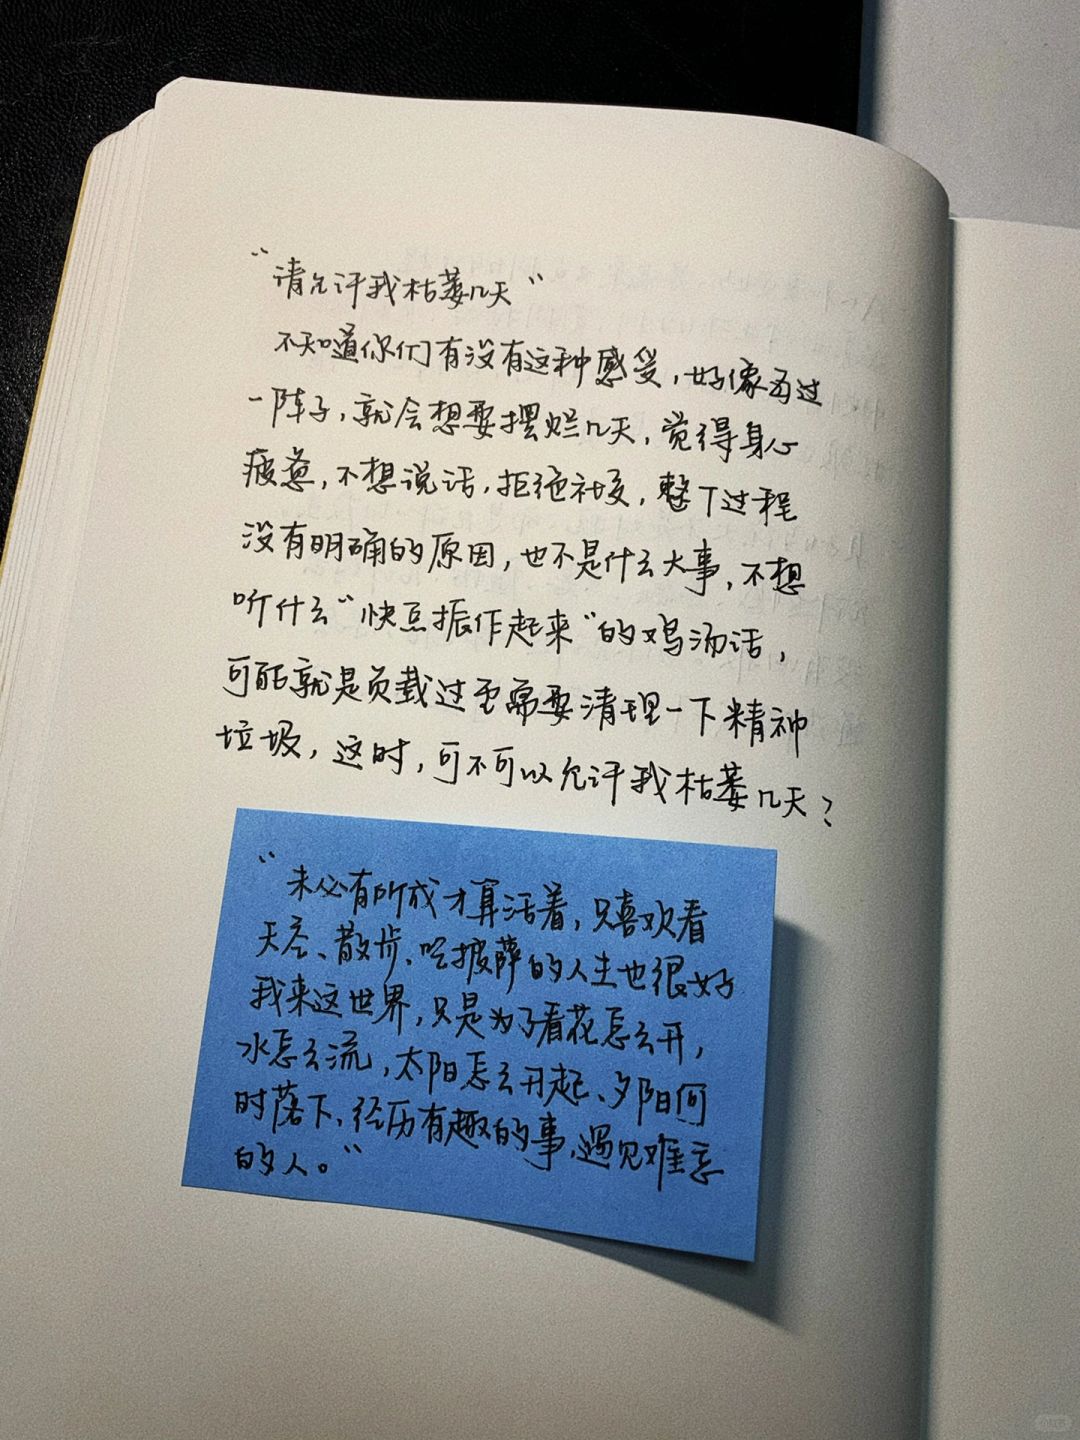 “请允许我枯萎几天”
不知道你们有没有这种感受，好像每过
一阵子，就会想要摆烂几天，觉得身心
疲惫，不想说话，拒绝社交，整个过程
没有明确的原因，也不是什么大事，不想
听什么“快点振作起来”的鸡汤话，
可能就是负载过重需要清理一下精神
垃圾，这时，可不可以允许我枯萎几天？
“未必有所成才算活着，只喜欢看
天空、散步、吃披萨的人生也很好
我来这世界，只是为了看花怎么开，
水怎么流，太阳怎么升起、夕阳何
时落下、经历有趣的事、遇见难忘
的人。”